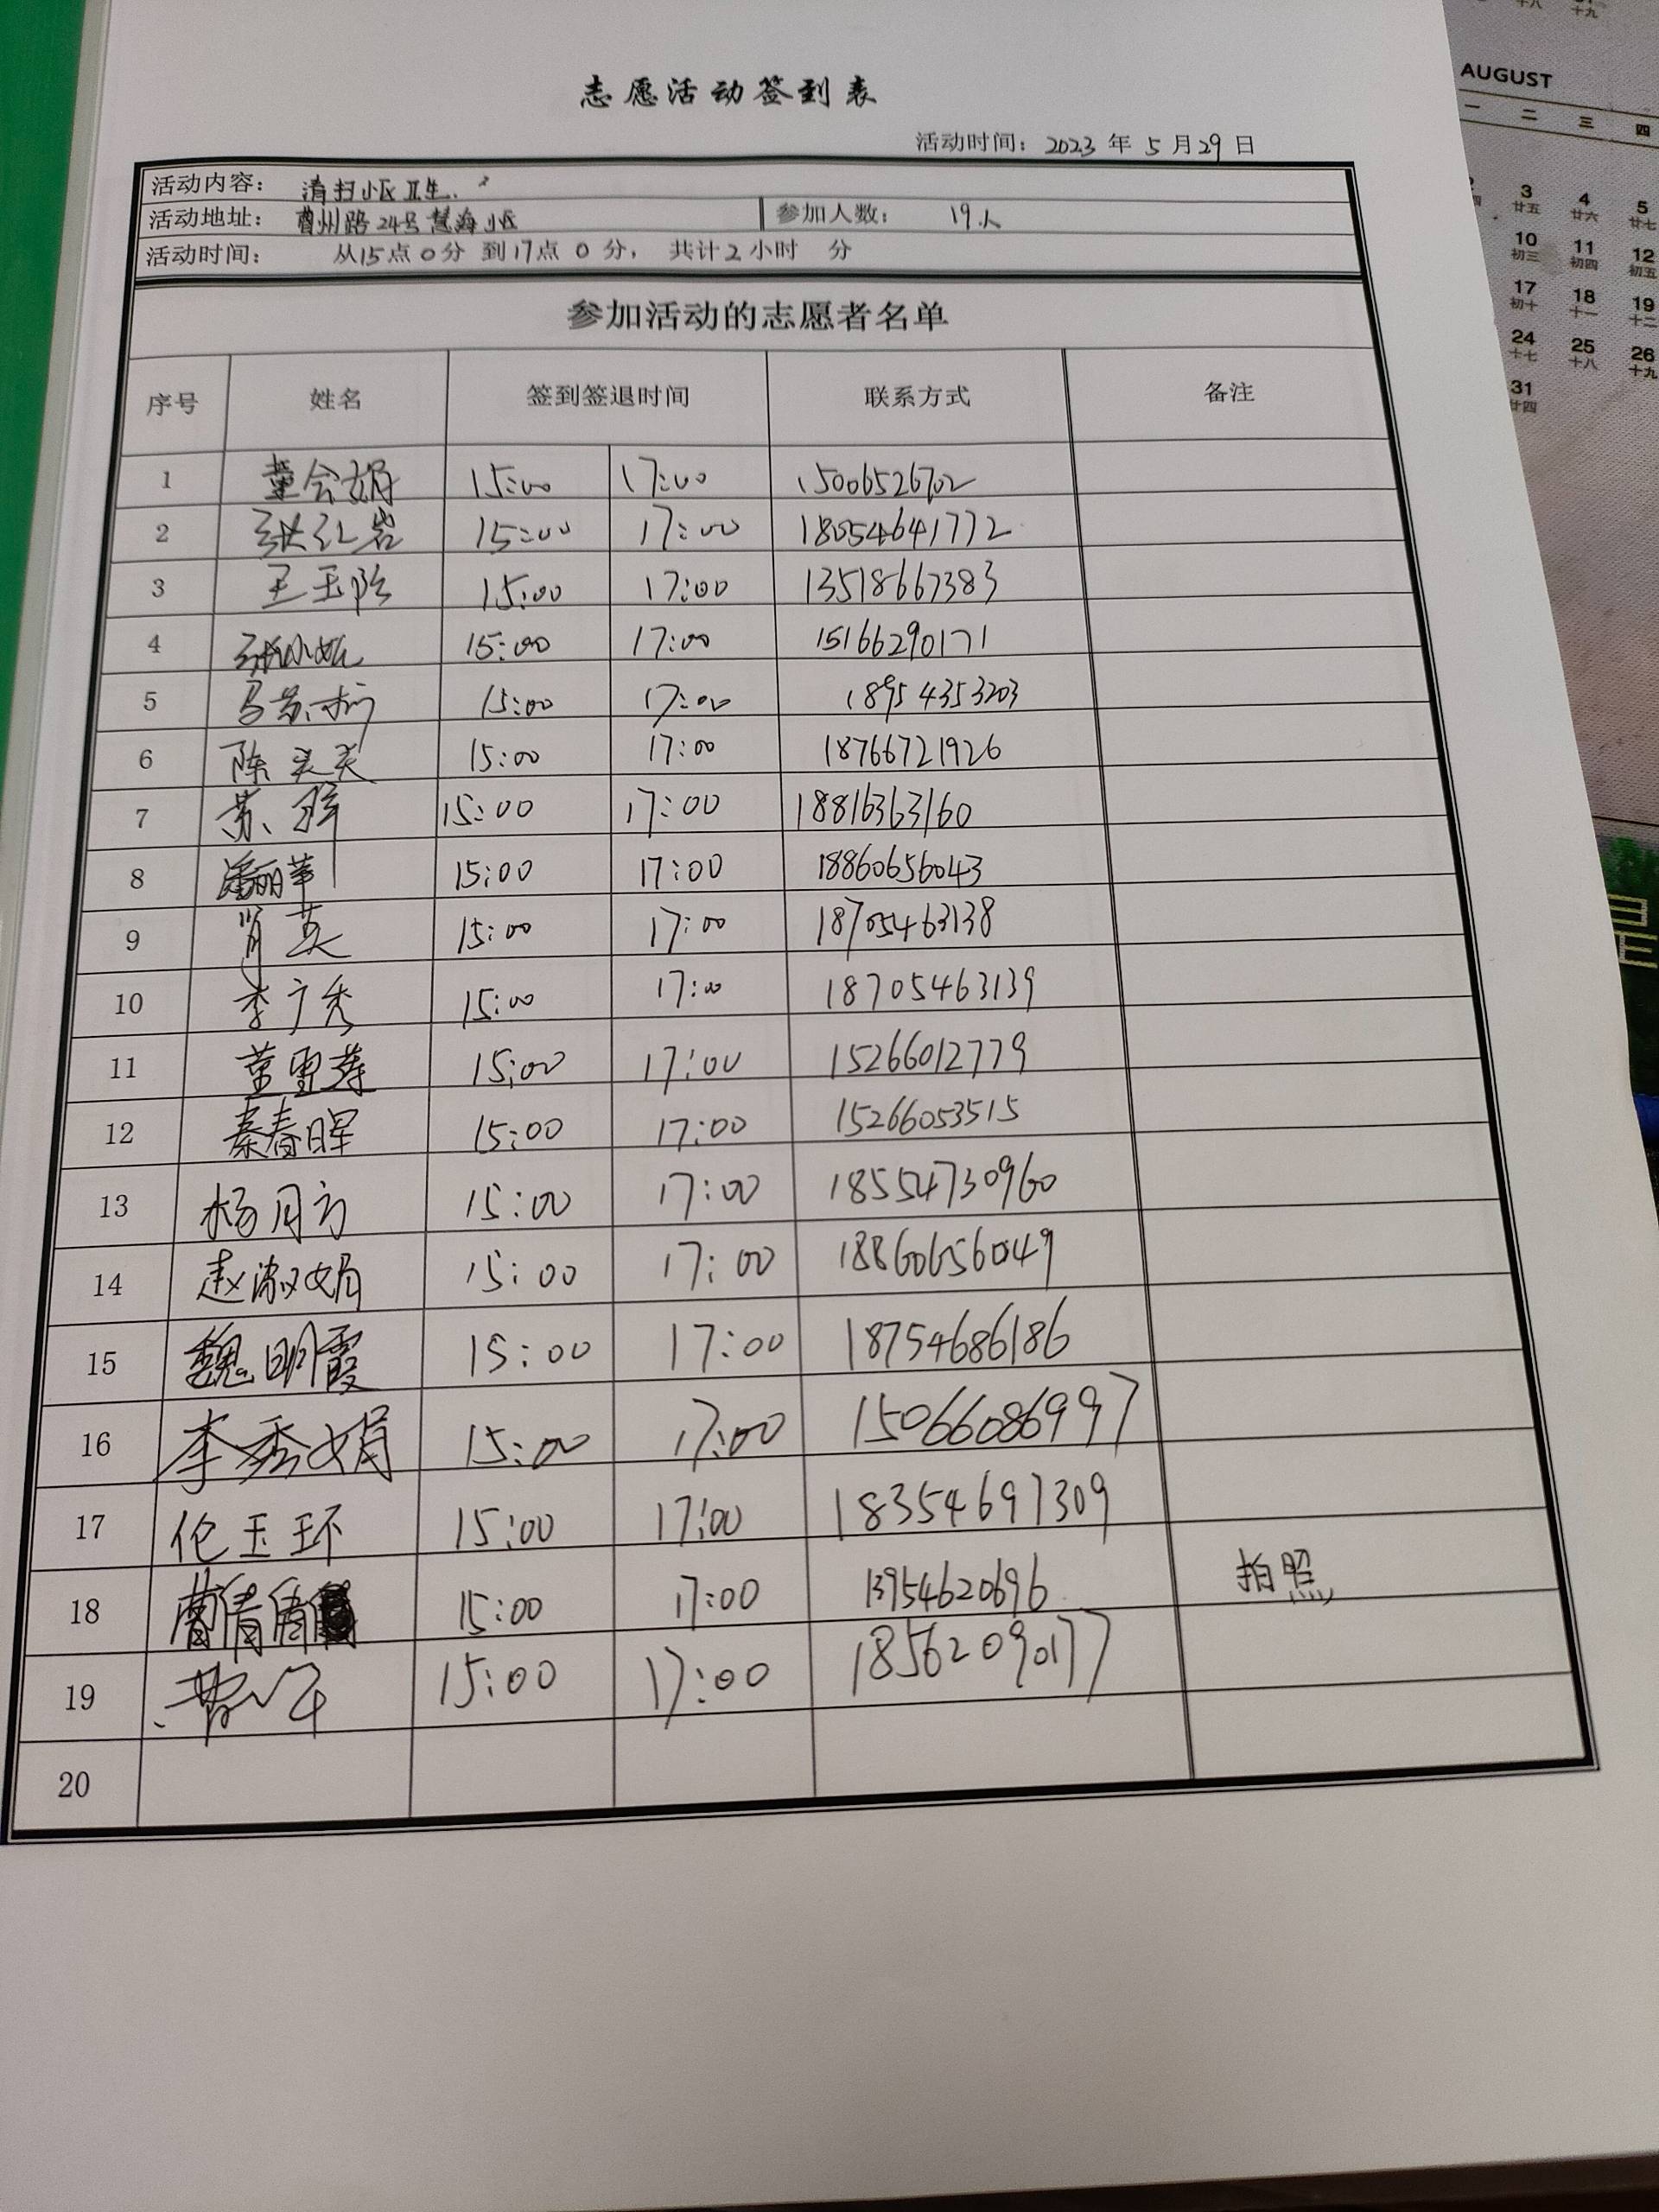 志愿活动签到表
活动时间：2023 年 5 月 29 日
活动内容： 清扫小区卫生.
活动地址： 曹州路24号慧海小区 参加人数： 19人
活动时间： 从15点0分 到17点 0 分， 共计2小时 分
参加活动的志愿者名单
序号 姓名 签到签退时间 联系方式 备注
1 董会娟 15:00 17:00 15006526702
2 张红岩 15:00 17:00 18054641772
3 王玉 15:00 17:00 13518667383
4 张小 15:00 17:00 15166290171
5 马 15:00 17:00 18954353203
6 陈 15:00 17:00 18766721926
7 苏 15:00 17:00 18816363160
8 潘丽苹 15:00 17:00 18860656043
9 肖英 15:00 17:00 18705463138
10 李广秀 15:00 17:00 18705463139
11 董雪 15:00 17:00 15266012779
12 秦春晖 15:00 17:00 15266053515
13 杨月方 15:00 17:00 18554730960
14 赵淑娟 15:00 17:00 18860656049
15 魏明霞 15:00 17:00 18754686186
16 李秀娟 15:00 17:00 15066086997
17 伦玉环 15:00 17:00 18354697309
18 曹倩倩 15:00 17:00 13954620696 拍照
19 15:00 17:00 18562090177
20
AUGUST
一 二 三 四
3 4 5
廿五 廿六 廿七
10 11 12
初三 初四 初五
17 18 19
初十 十一 十二
24 25 26
十七 十八 十九
31
廿四